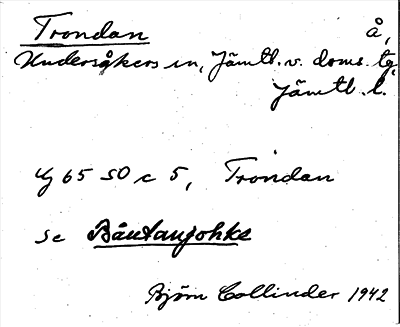 Trondan å,
Undersåkers sn, Jämtl. v. doms. tg,
Jämtl. l.
Gg 65 SO c 5, Trondan
se Båutaujohke
Björn Collinder 1942